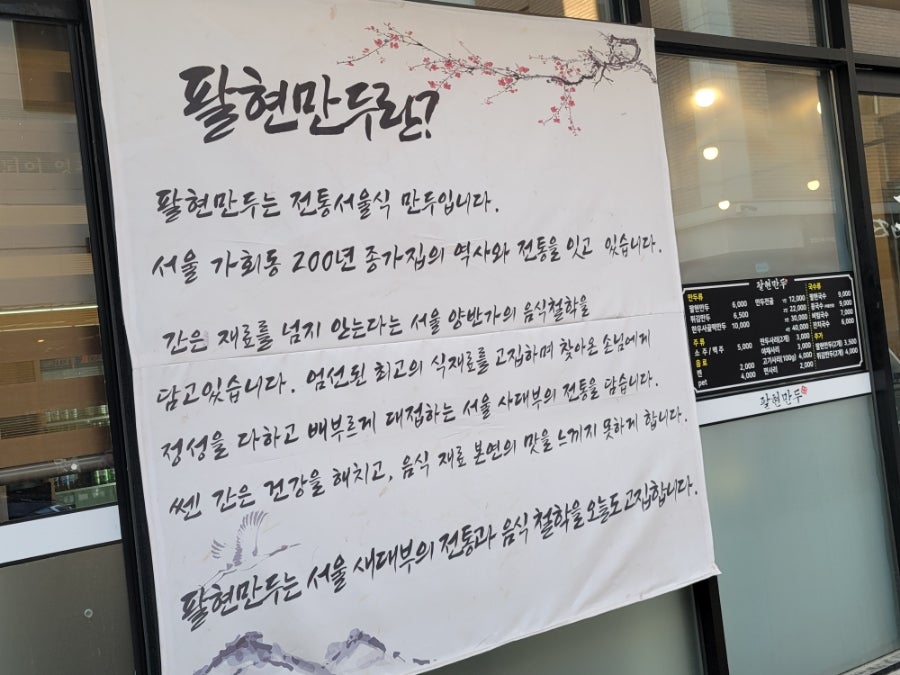 팔현만두란?
팔현만두는 전통서울식 만두입니다.
서울 가회동 200년 종가집의 역사와 전통을 잇고 있습니다.
간은 재료를 넘지 않는다는 서울 양반가의 음식철학을
담고있습니다. 엄선된 최고의 식재료를 고집하며 찾아온 손님에게
정성을 다하고 배부르게 대접하는 서울 사대부의 전통을 담습니다.
쎈 간은 건강을 해치고, 음식 재료 본연의 맛을 느끼지 못하게 합니다.
팔현만두는 서울 새대부의 전통과 음식 철학을 오늘도 고집합니다.
팔현만두
만두류
팔현만두 6,000
튀김만두 6,500
한우사골떡만두 10,000
주류
소주/맥주 5,000
음료
캔 2,000
pet 4,000
만두전골 12,000
22,000
30,000
40,000
만두사리(2개) 3,000
야채사리 3,000
고기사리(100g) 4,000
면사리 2,000
국수류
팔현국수 9,000
9,000
비빔국수 7,000
잔치국수 6,000
추가
팔현만두(2개) 3,500
튀김만두(2개) 4,000
팔현만두